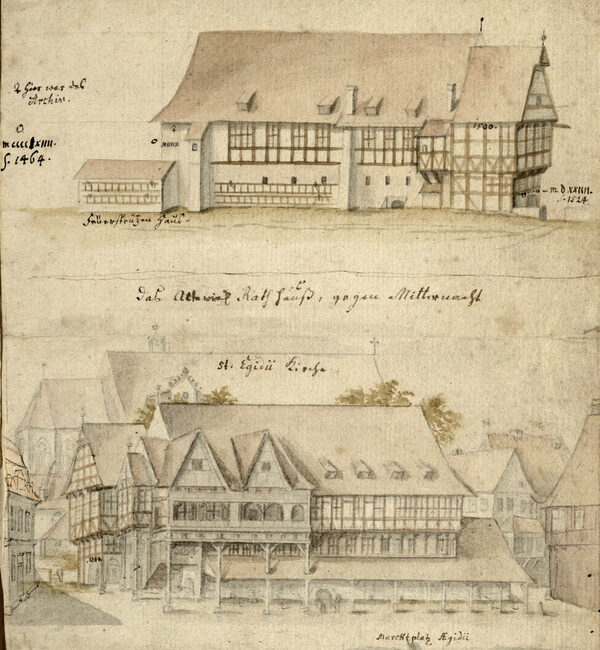 hier war das
Archiv.
mccccLxiiii.
1464.
1500.
m D xxiiii.
1524
Feuersprutzen Haus.
das Altewiek Rath hauß, gegen Mitternacht
St. Egidii Kirche.
Marcktplatz Ægidii